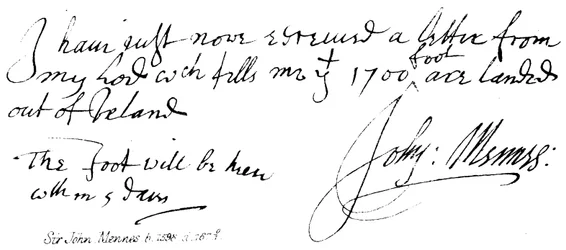 I haue iust now receiued a letter from
my Lord wch tells me yt 1700 foot are landed
out of Ireland
The foot will be heer
wthin 5 daies
John: Mennes:
Sir John Mennes b. 1598 d. 1671